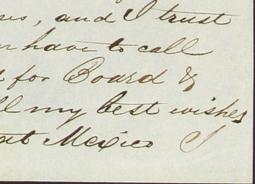 and I trust
have to call
for Board &
my best wishes
at Mexico I